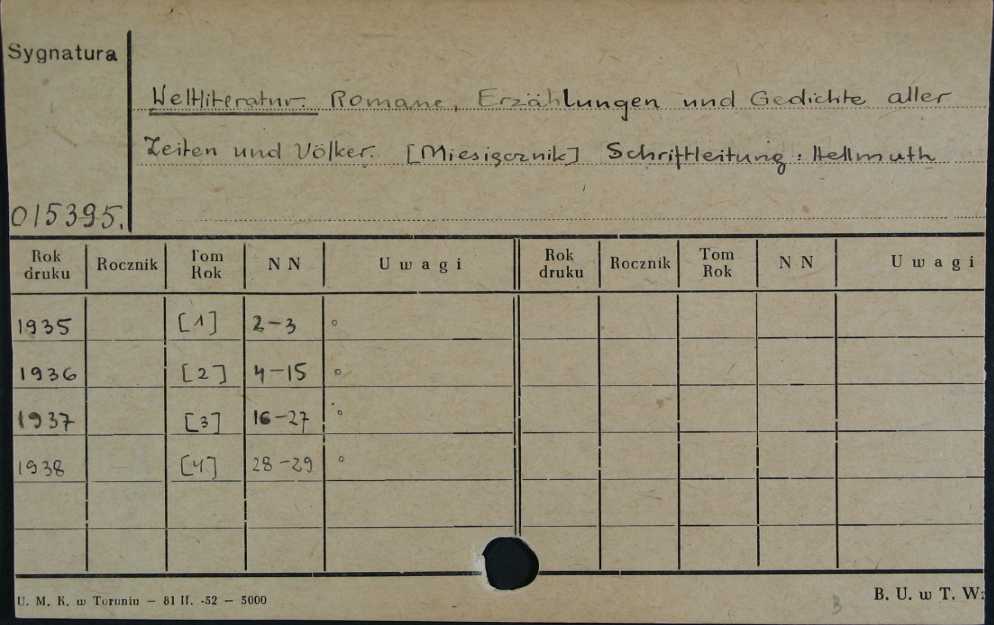 Sygnatura
Weltliteratur. Romane, Erzählungen und Gedichte aller
Zeiten und Völker. [Miesięcznik] Schriftleitung: Hellmuth
015395.
Rok druku Rocznik Tom Rok NN Uwagi Rok druku Rocznik Tom Rok NN Uwagi
1935 [1] 2-3 °
1936 [2] 4-15 °
1937 [3] 16-27 °
1938 [4] 28-29 °
U. M. K. w Toruniu — 81 II. -52 — 5000
B. U. w T. W:
B